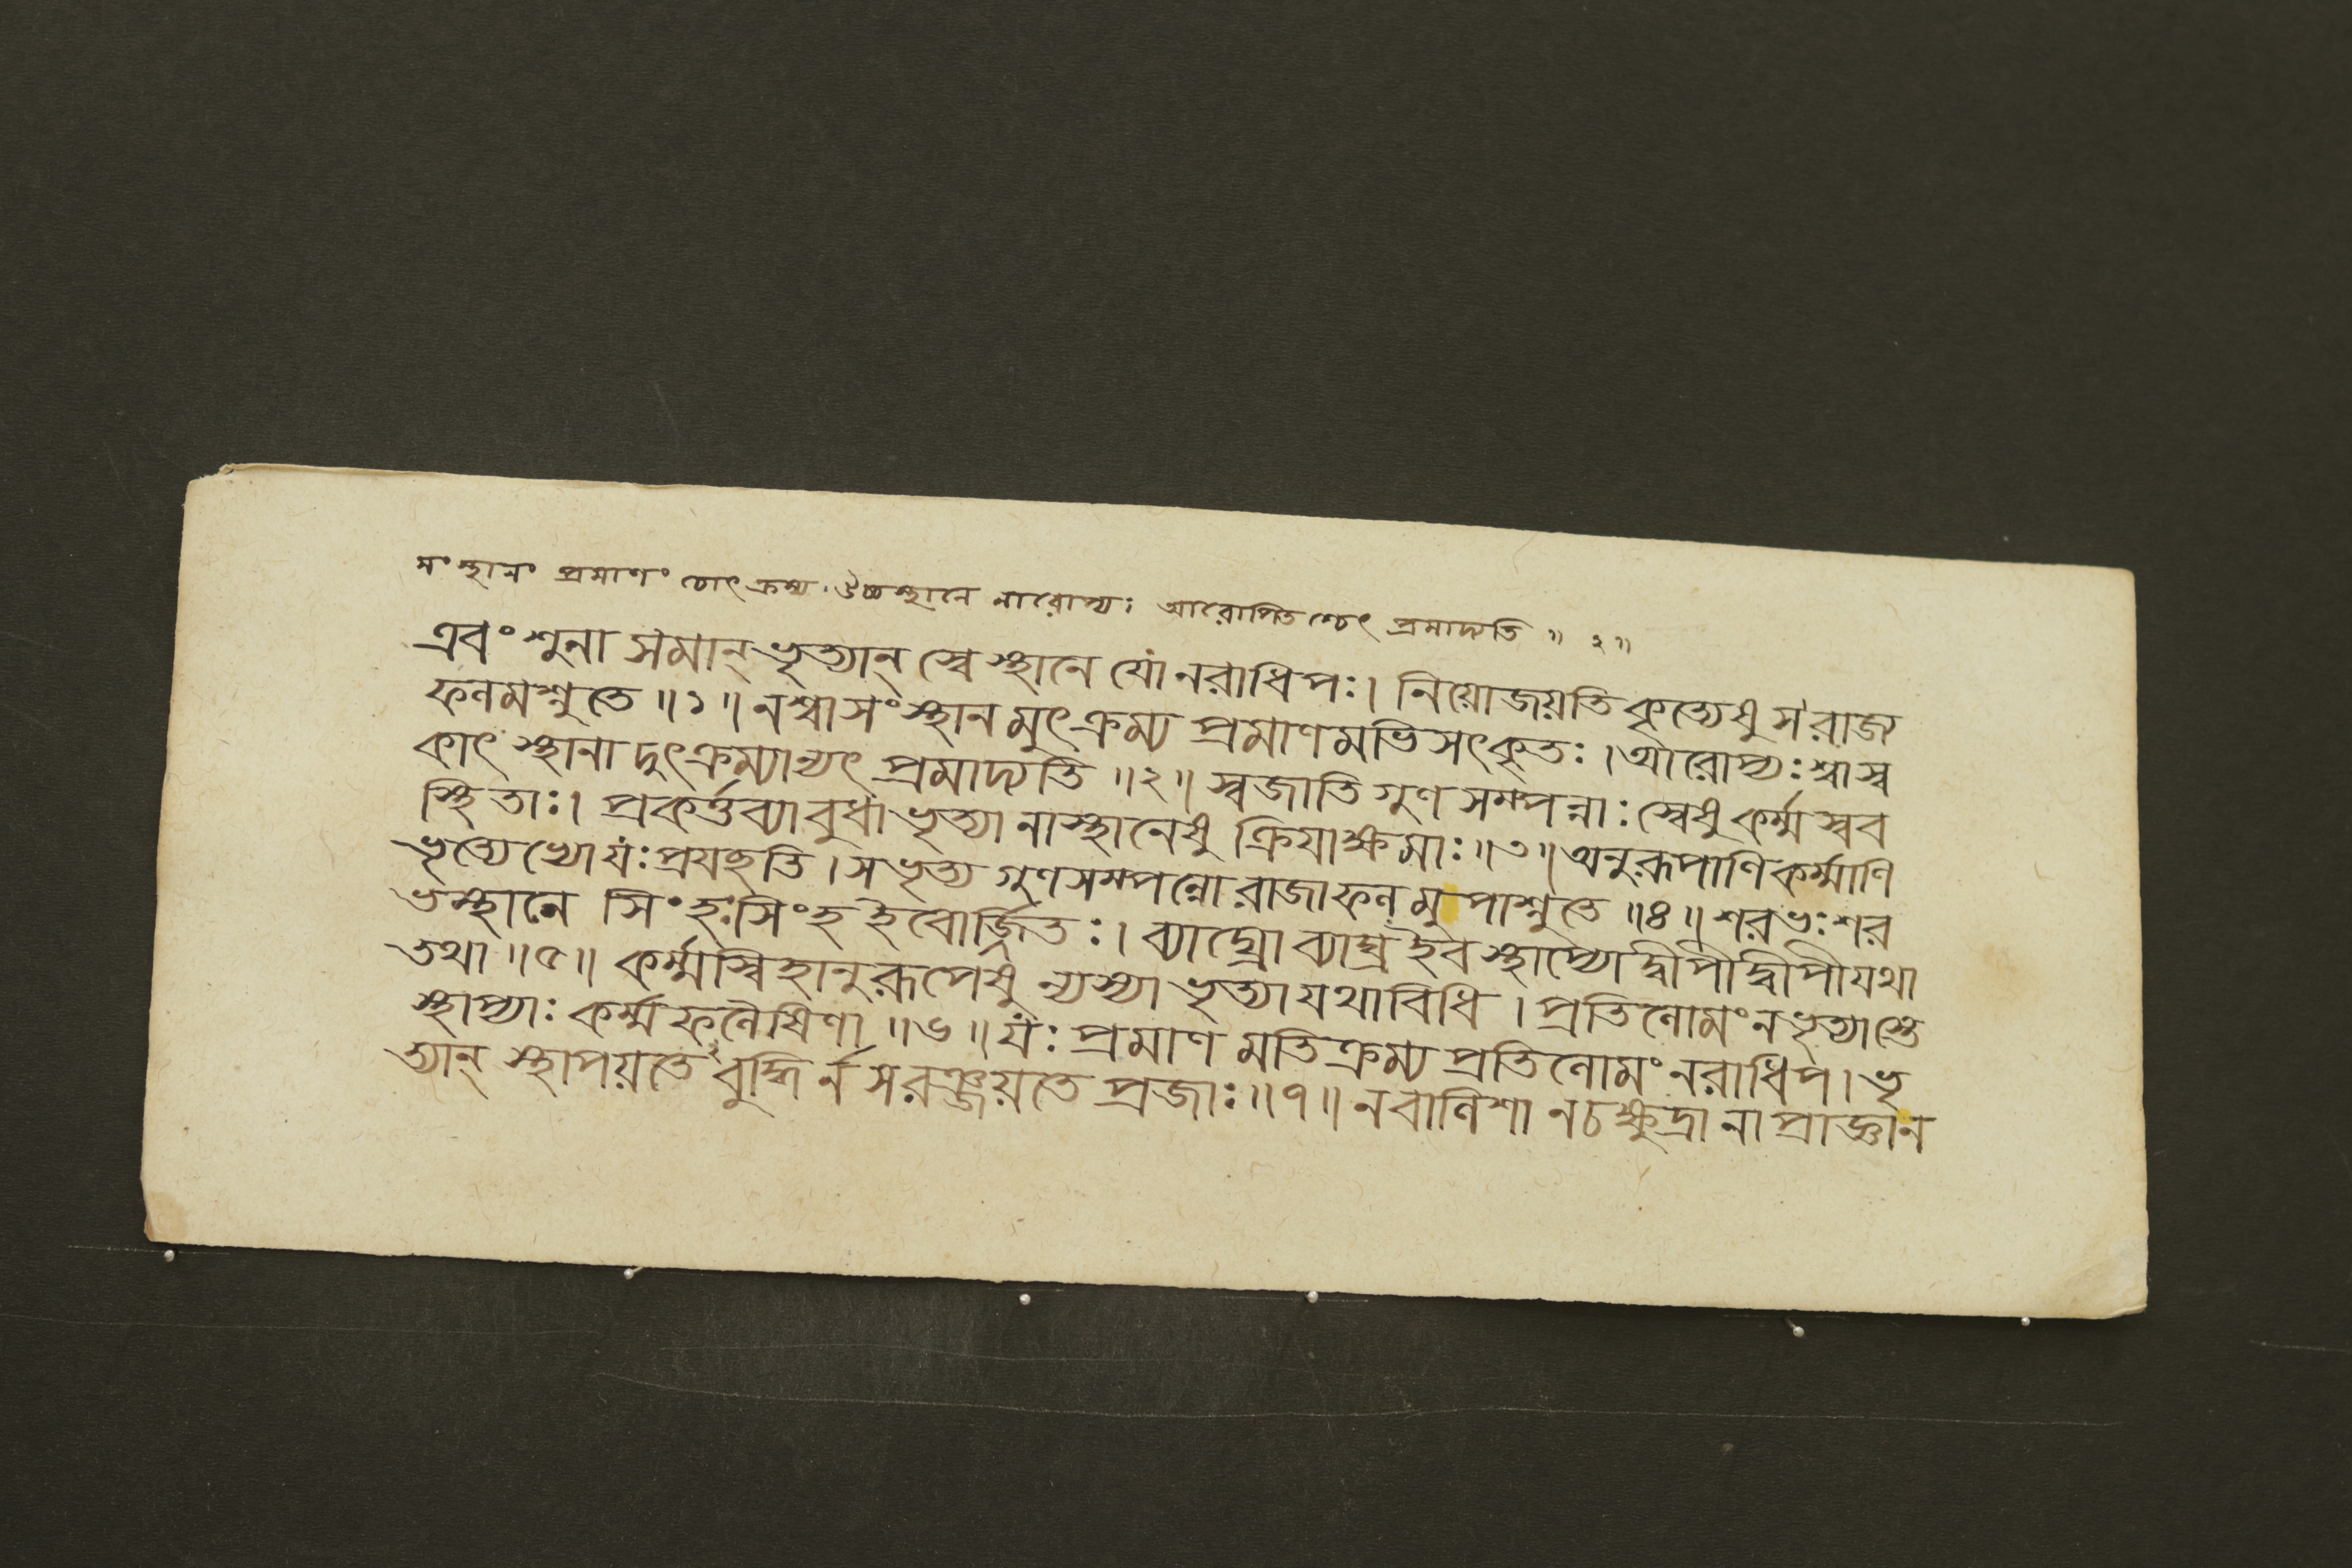 সংস্থানং প্রমাণং চোৎক্রম্য উচ্চস্থানে নারোপ্যঃ আরোপিতশ্চেৎ প্রমাদ্যতি ॥ ২॥
এবং শুনা সমান্ ভৃত্যান্ স্বে স্থানে যো নরাধিপঃ। নিয়োজয়তি কৃত্যেষু স রাজ্য
ফলমশ্নুতে ॥১॥ নশ্বাসংস্থানমুৎক্রম্য প্রমাণমভিসৎকৃতঃ। আরোপ্যঃ শ্বাস্ব
কাৎ স্থানাদুৎক্রম্যান্যৎ প্রমাদ্যতি ॥২॥ স্বজাতিগুণসম্পন্নাঃ স্বেষু কর্ম্মস্বব
স্থিতাঃ। প্রকর্ত্তব্যাবুধা ভৃত্যা নাস্থানেষু ক্রিয়াক্ষমাঃ ॥৩॥ অনুরূপাণি কর্ম্মাণি
ভৃত্যেভ্যো যঃ প্রযচ্ছতি। স ভৃত্যগুণসম্পন্নো রাজা ফলমুপাশ্নুতে ॥৪॥ শরভঃ শর
ভস্থানে সিংহঃ সিংহ ইবোর্জ্জিতঃ। ব্যাঘ্রো ব্যাঘ্র ইব স্থাপ্যো দ্বীপী দ্বীপী যথা
তথা ॥৫॥ কর্ম্মস্বিহানুরূপেষু ন্যস্যা ভৃত্যা যথাবিধি। প্রতিলোমং ন ভৃত্যাস্তে
স্থাপ্যাঃ কর্ম্মফলৈষিণা ॥৬॥ যঃ প্রমাণমতিক্রম্য প্রতিলোমং নরাধিপ। ভৃ
ত্যান্ স্থাপয়তে বুদ্ধির্ন স রঞ্জয়তে প্রজাঃ ॥৭॥ ন বালিশা ন চ ক্ষুদ্রা নাপ্রাজ্ঞা ন